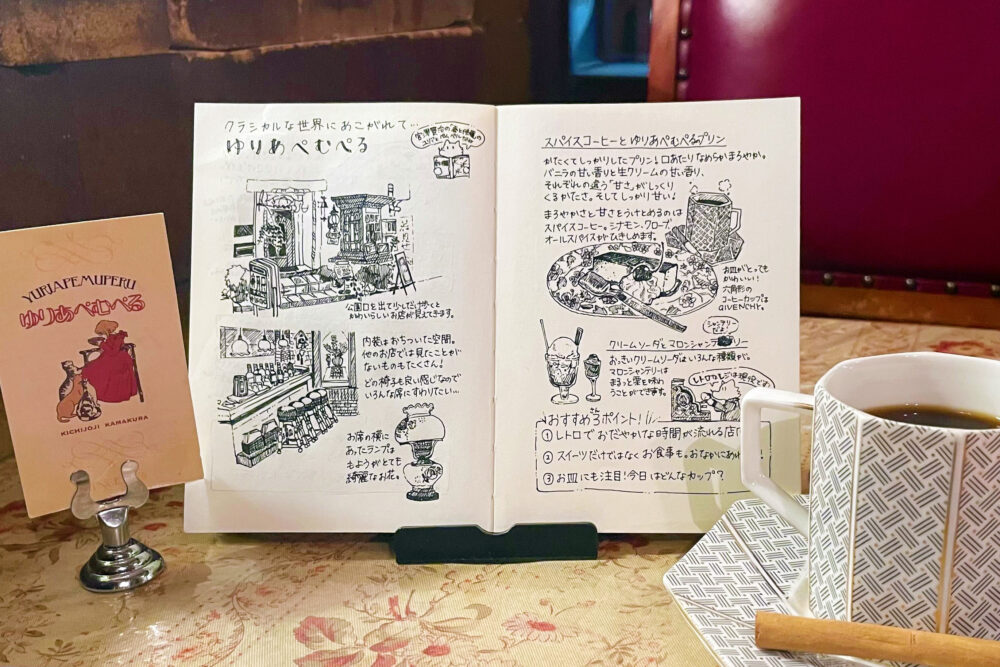 YURIAPEMUPERU
ゆりあぺむぺる
KICHIJOJI KAMAKURA
クラシカルな世界にあこがれて…
ゆりあぺむぺる
宮澤賢治の「春と修羅」の
公園口を出て少しだけ歩くと
かわいらしいお店が見えてきます。
内装はおちついた空間。
他のお店では見たことが
ないものもたくさん!
どの椅子も良い感じなので
いろんな席にすわりたい…
お席の横に
あったランプは
もようがとても
綺麗なお花。
スパイスコーヒーとゆりあぺむぺるプリン
かたくてしっかりしたプリン!口あたりなめらかまろやか。
バニラの甘い香りと生クリームの甘い香り、
それぞれの違う「甘さ」がしっくり
くるかたさ。そしてしっかり甘い!
まろやかさと甘さをうけとめるのは
スパイスコーヒー。シナモン、クローブ、
オールスパイスがひきしめます。
お皿がとっても
かわいい!
六角形の
コーヒーカップは
GIVENCHY。
シャンテリー
だよ
クリームソーダとマロンシャンテリー
おっきいクリームソーダはいろんな種類が。
マロンシャンテリーは
まるっと栗を味わ
うことができます。
レトロなレジは現役です
おすすめ3ポイント!
① レトロでおだやかな時間が流れる店
② スイーツだけではなくお食事も。おなかにあわ
③ お皿にも注目!今日はどんなカップ?